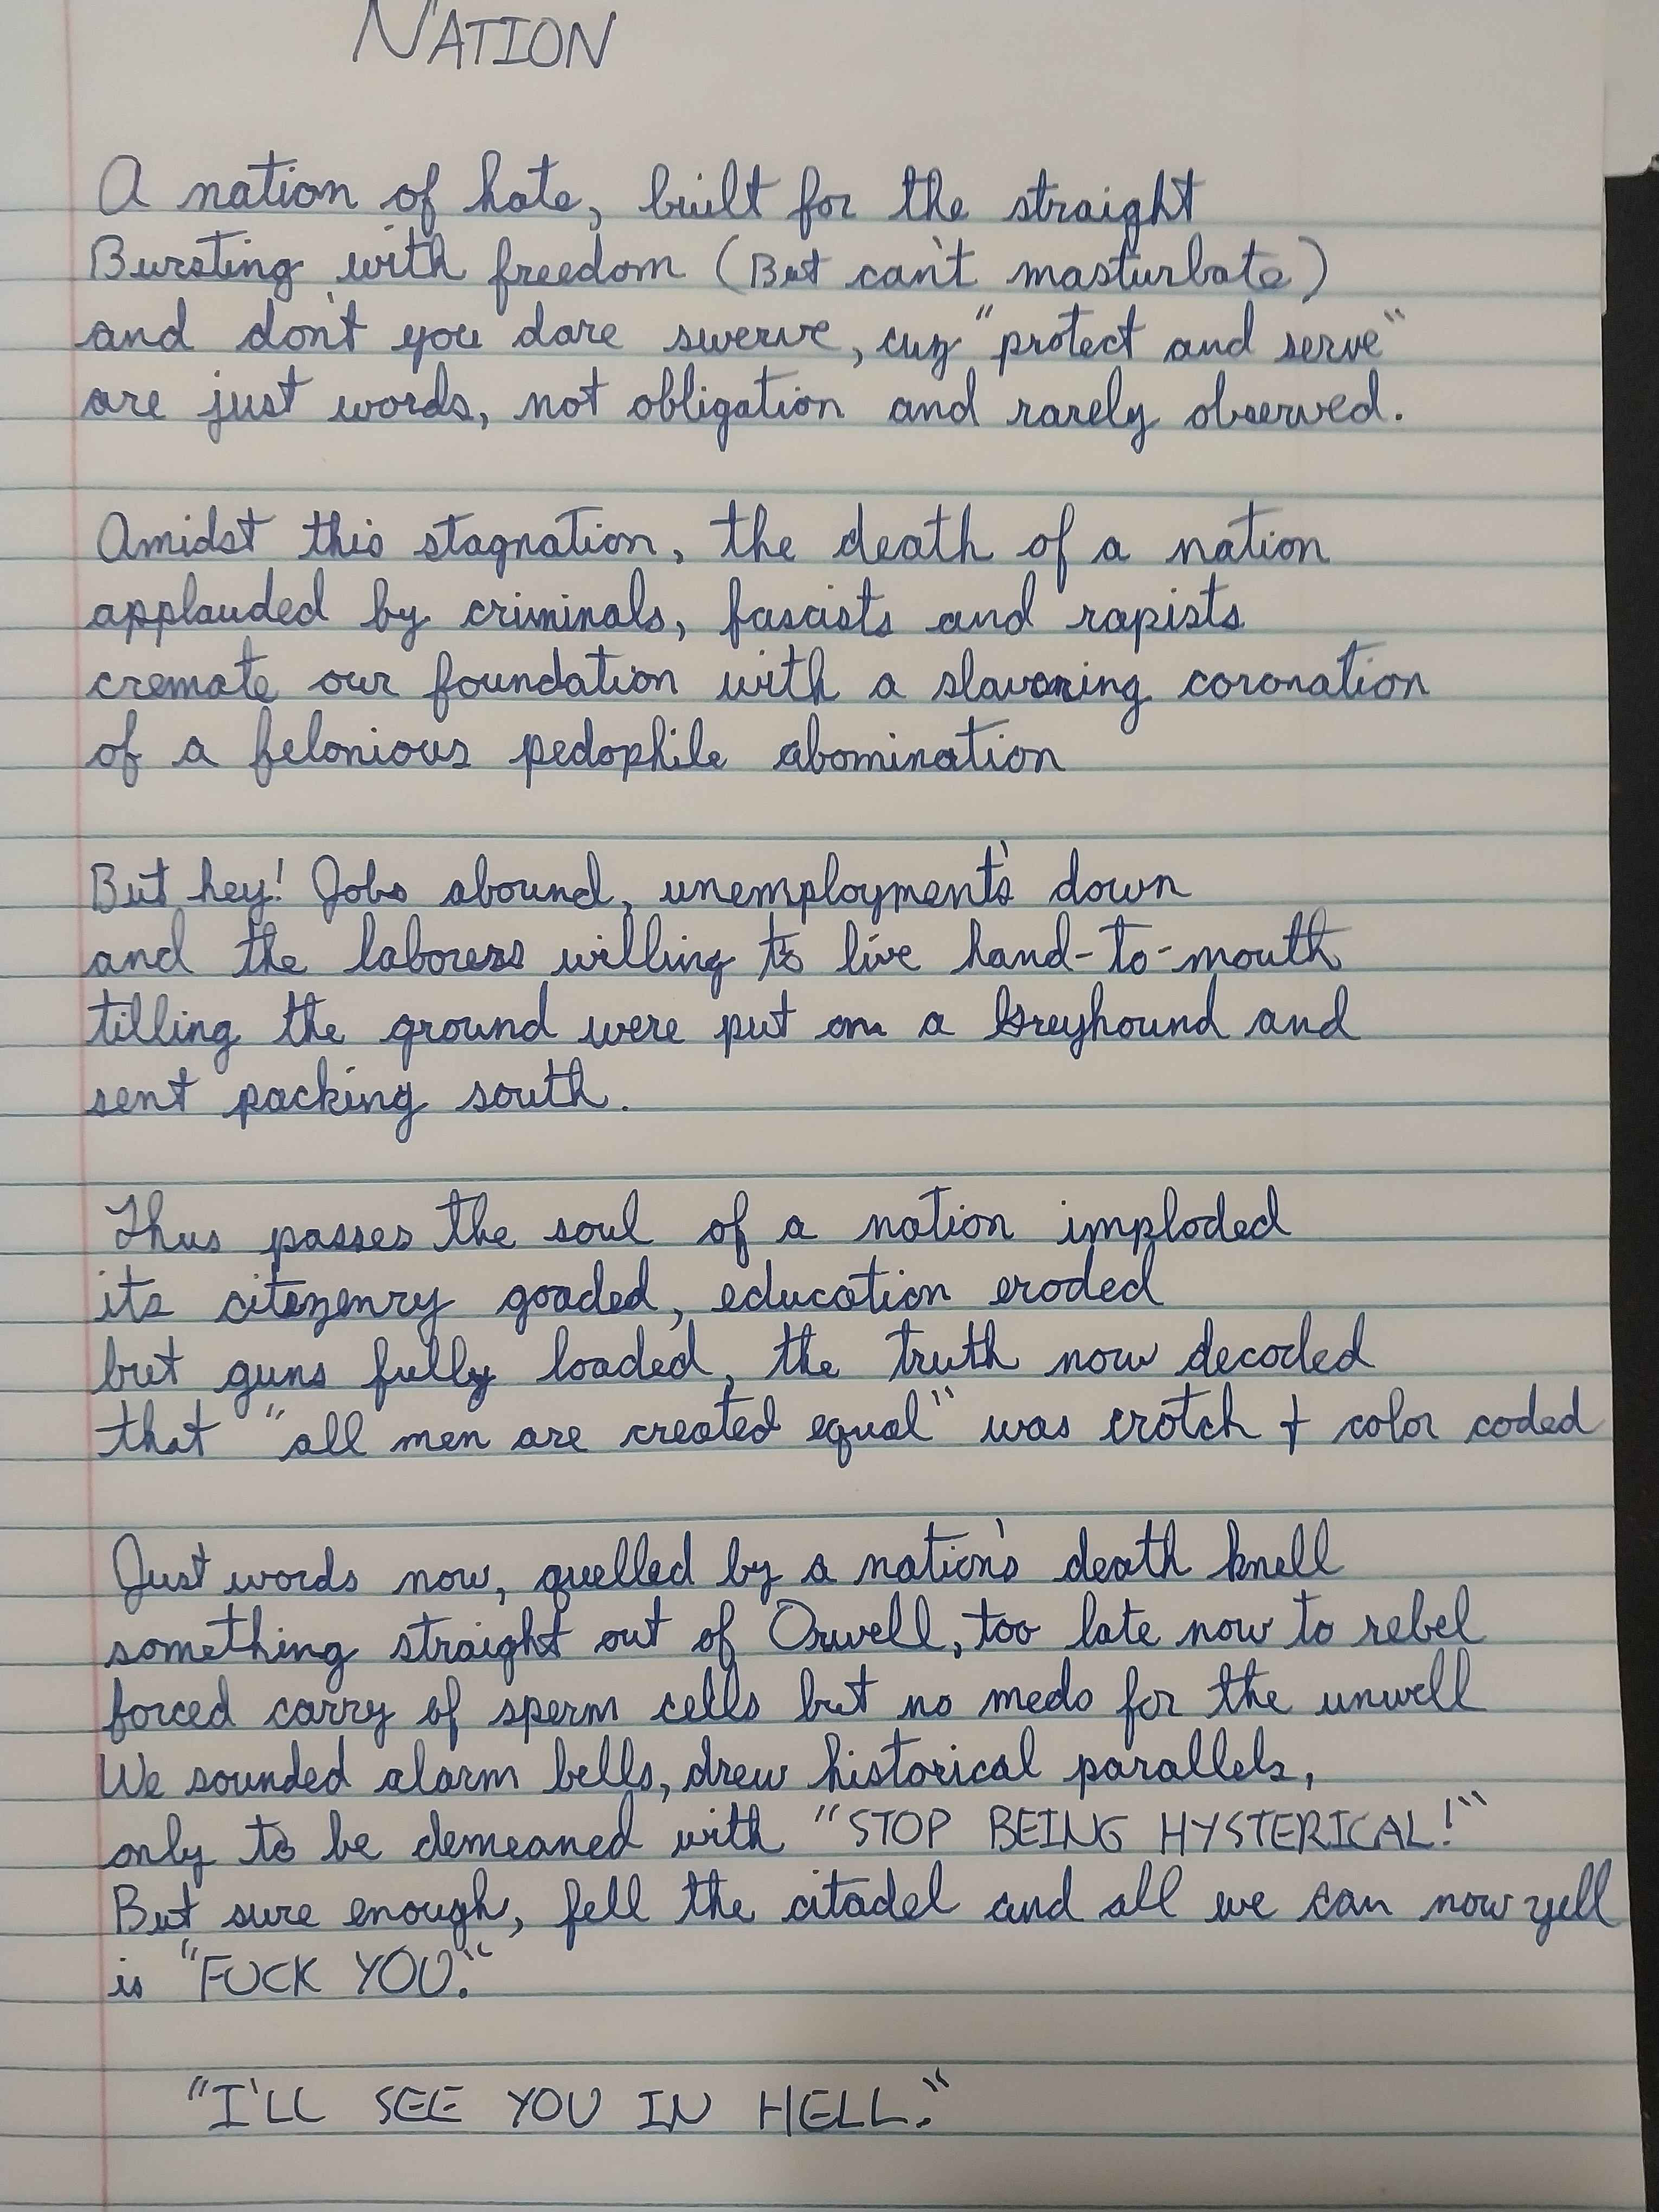 NATION
A nation of hate, built for the straight
Bursting with freedom (But can't masturbate)
and don't you dare swerve, cuz "protect and serve"
are just words, not obligation and rarely observed.
Amidst this stagnation, the death of a nation
applauded by criminals, fascists and rapists
cremate our foundation with a slavering coronation
of a felonious pedophile abomination
But hey! Jobs abound, unemployment's down
and the laborers willing to live hand-to-mouth
tilling the ground were put on a Greyhound and
sent packing south.
Thus passes the soul of a nation imploded
its citezenry goaded, education eroded
but guns fully loaded, the truth now decoded
that "all men are created equal" was crotch + color coded
Just words now, quelled by a nation's death knell
something straight out of Orwell, too late now to rebel
forced carry of sperm cells but no meds for the unwell
We sounded alarm bells, drew historical parallels,
only to be demeaned with "STOP BEING HYSTERICAL!"
But sure enough, fell the citadel and all we can now yell
is "FUCK YOU."
"I'LL SEE YOU IN HELL."